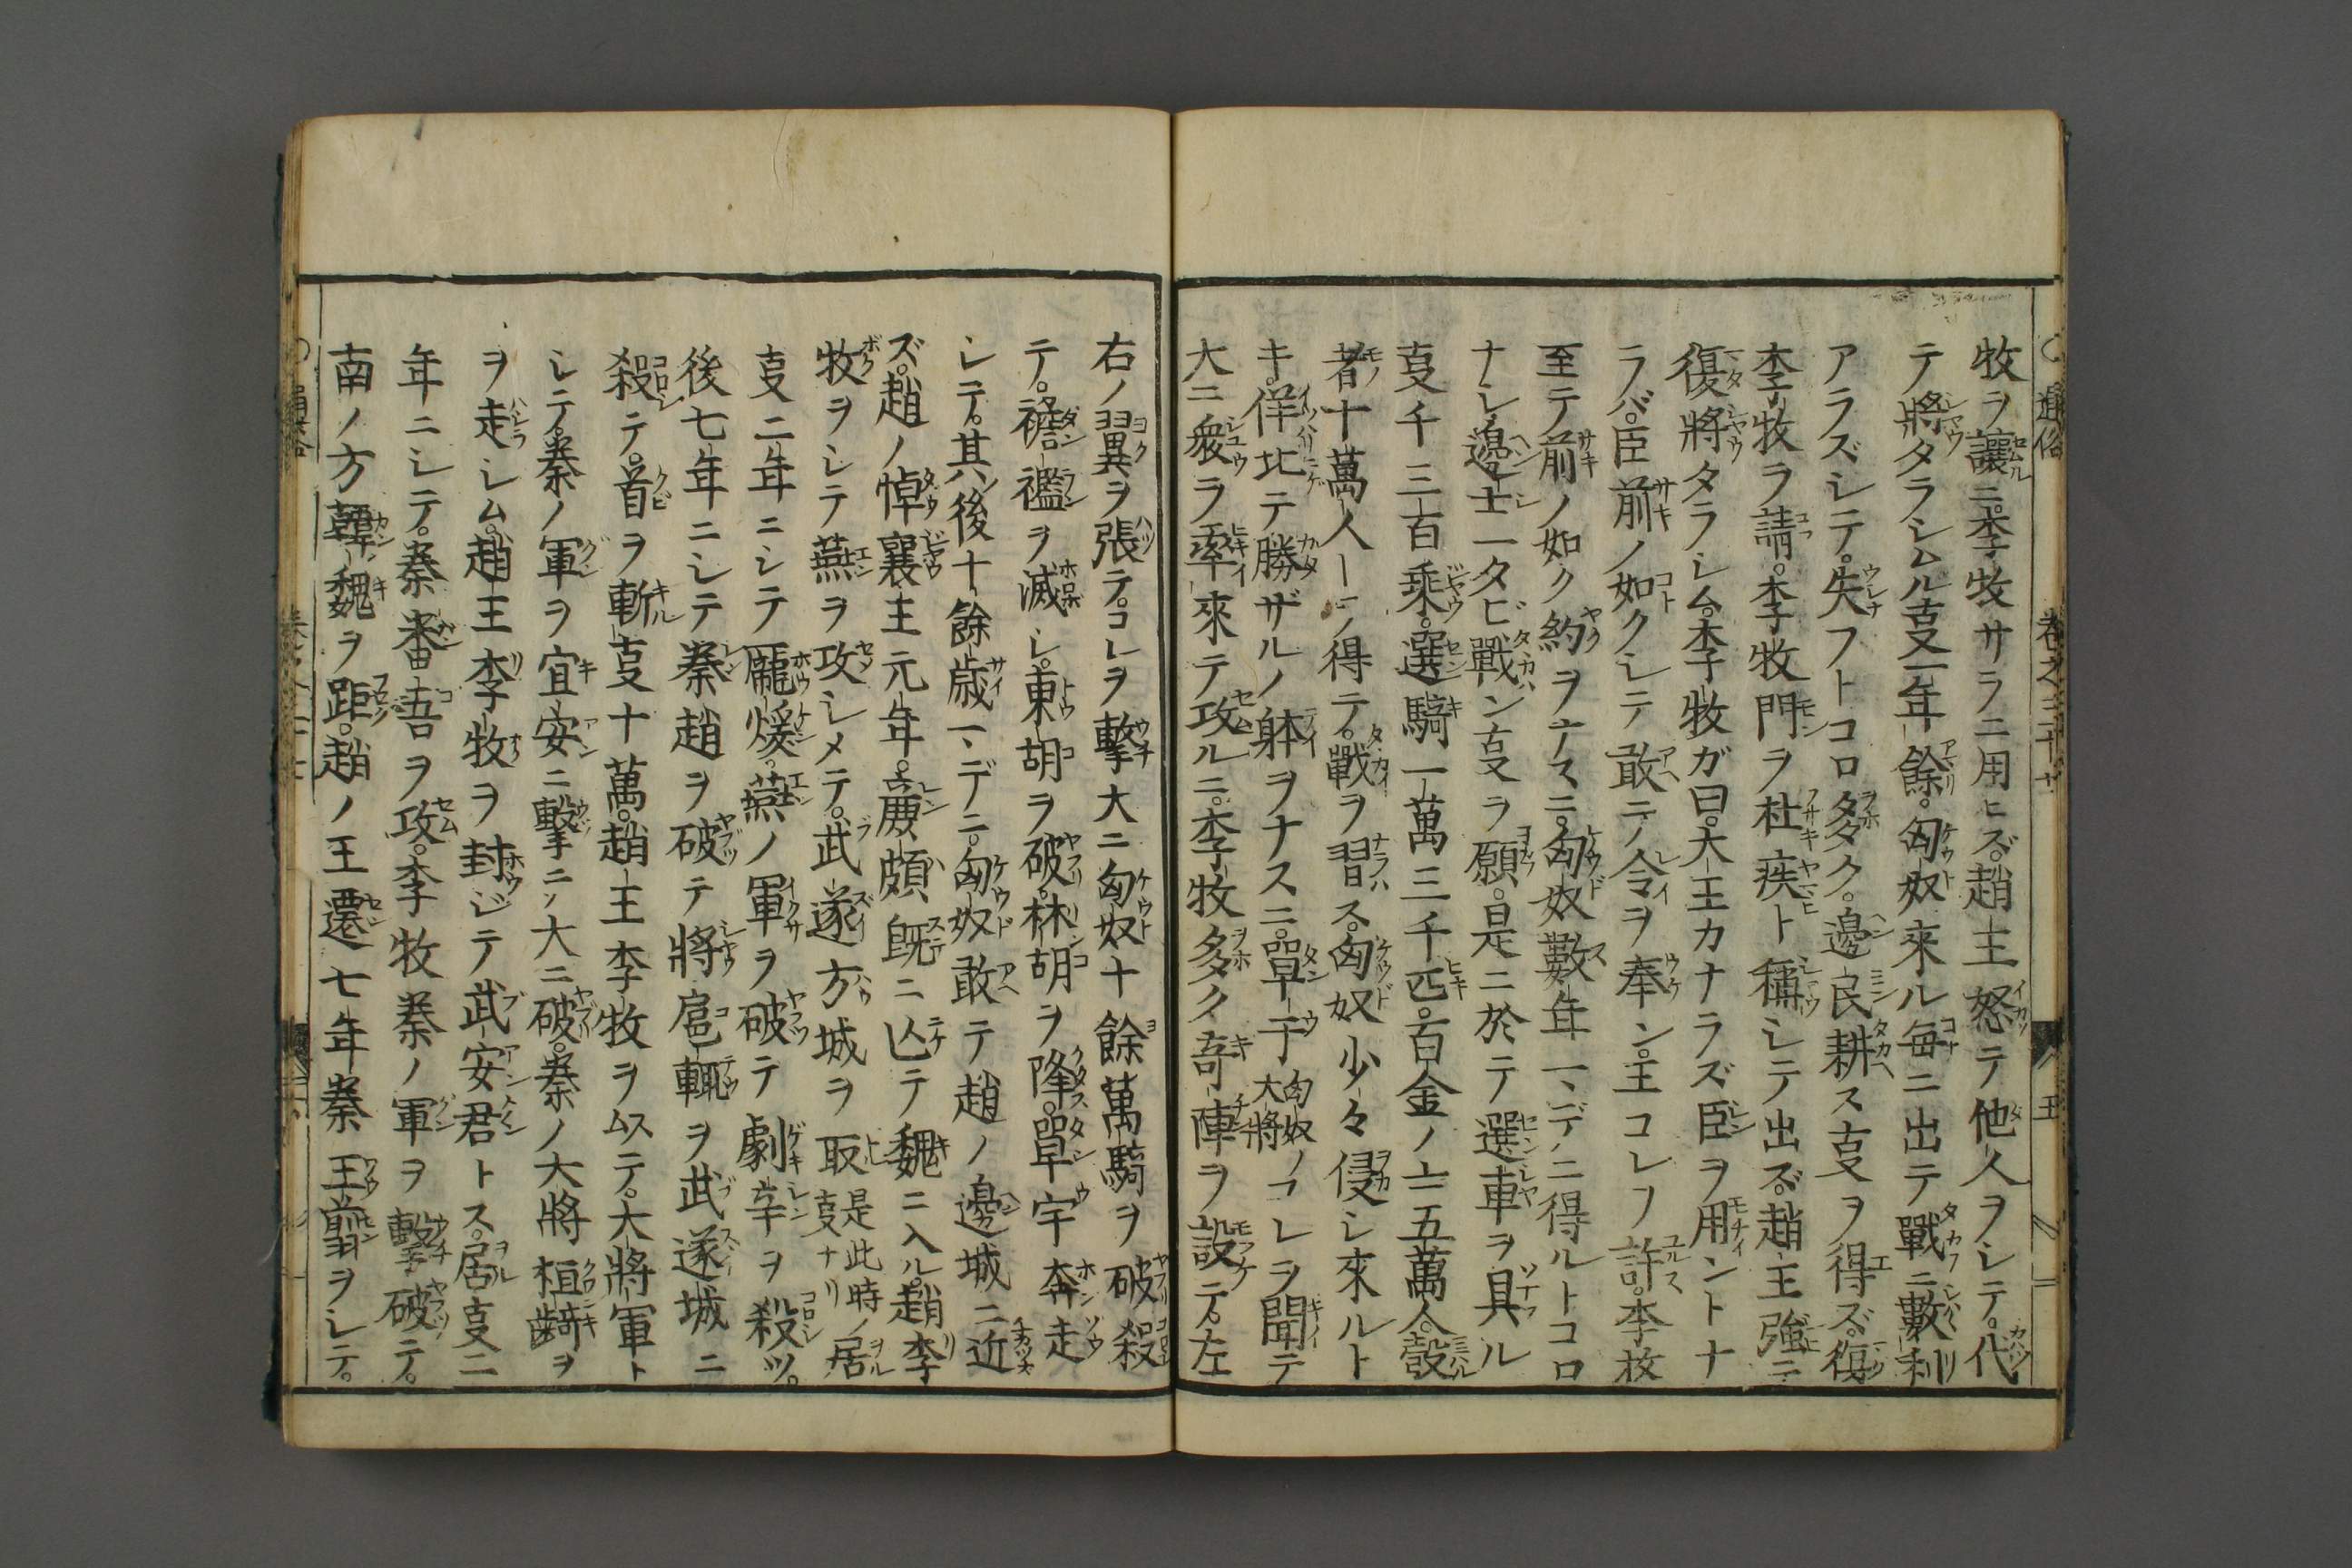 牧ヲ讓ニ。李牧サラニ用ヒズ。趙王怒テ他人ヲシテ。代
テ將タラシムル叓一年餘。匈奴來ル毎ニ出テ戰ニ數利
アラズシテ。失フトコロ多ク。邊民耕ス叓ヲ得ズ。復
李牧ヲ請。李牧門ヲ杜疾ト稱シテ出ズ。趙王強ニ
復將タラシム。李牧ガ曰。大王カナラズ臣ヲ用ントナ
ラバ。臣前ノ如クシテ敢ニノ令ヲ奉ン。王コレヲ許。李牧
至テ前ノ如ク約ヲナスニ。匈奴數年一、デニ得ルトコロ
ナシ。邊士一タビ戰ン叓ヲ願。是ニ於テ選車ヲ具ル
叓千三百乘。選騎一萬三千匹。百金ノ士五萬人。彀
者十萬人ヲ得テ。戰ヲ習ハス。匈奴少々侵シ來ルト
キ。佯北テ勝ザルノ躰ヲナスニ。單于匈奴ノ大將コレヲ聞テ
大ニ衆ヲ率來テ攻ルニ。李牧多ク奇陣ヲ設テ。左
右ノ翼ヲ張テ。コレヲ擊大ニ匈奴十餘萬騎ヲ破殺
テ。襜襤ヲ滅シ。東胡ヲ破。林胡ヲ降。單宇奔走
シテ。其後十餘歳一、デニ。匈奴敢テ趙ノ邊城ニ近
ズ。趙ノ悼襄王元年。廉頗既ニ亾テ魏ニ入ル。趙李
牧ヲシテ燕ヲ攻シメテ。武遂方城ヲ取是此時ノ居叓ナリ
叓二年ニシテ龐煖。燕ノ軍ヲ破テ劇辛ヲ殺ツ。
後七年ニシテ秦趙ヲ破テ將扈輒ヲ武遂城ニ
殺テ。首ヲ斬叓十萬。趙王李牧ヲ以テ。大將軍ト
シテ。秦ノ軍ヲ宜安ニ擊ニ大ニ破。秦ノ大將桓齮ヲ
ヲ走シム。趙王李牧ヲ封ジテ武安君トス。居叓二
年ニシテ。秦番吾ヲ攻。李牧秦ノ軍ヲ擊破テ。
南ノ方韓魏ヲ距。趙ノ王遷七年秦王翦ヲシテ。